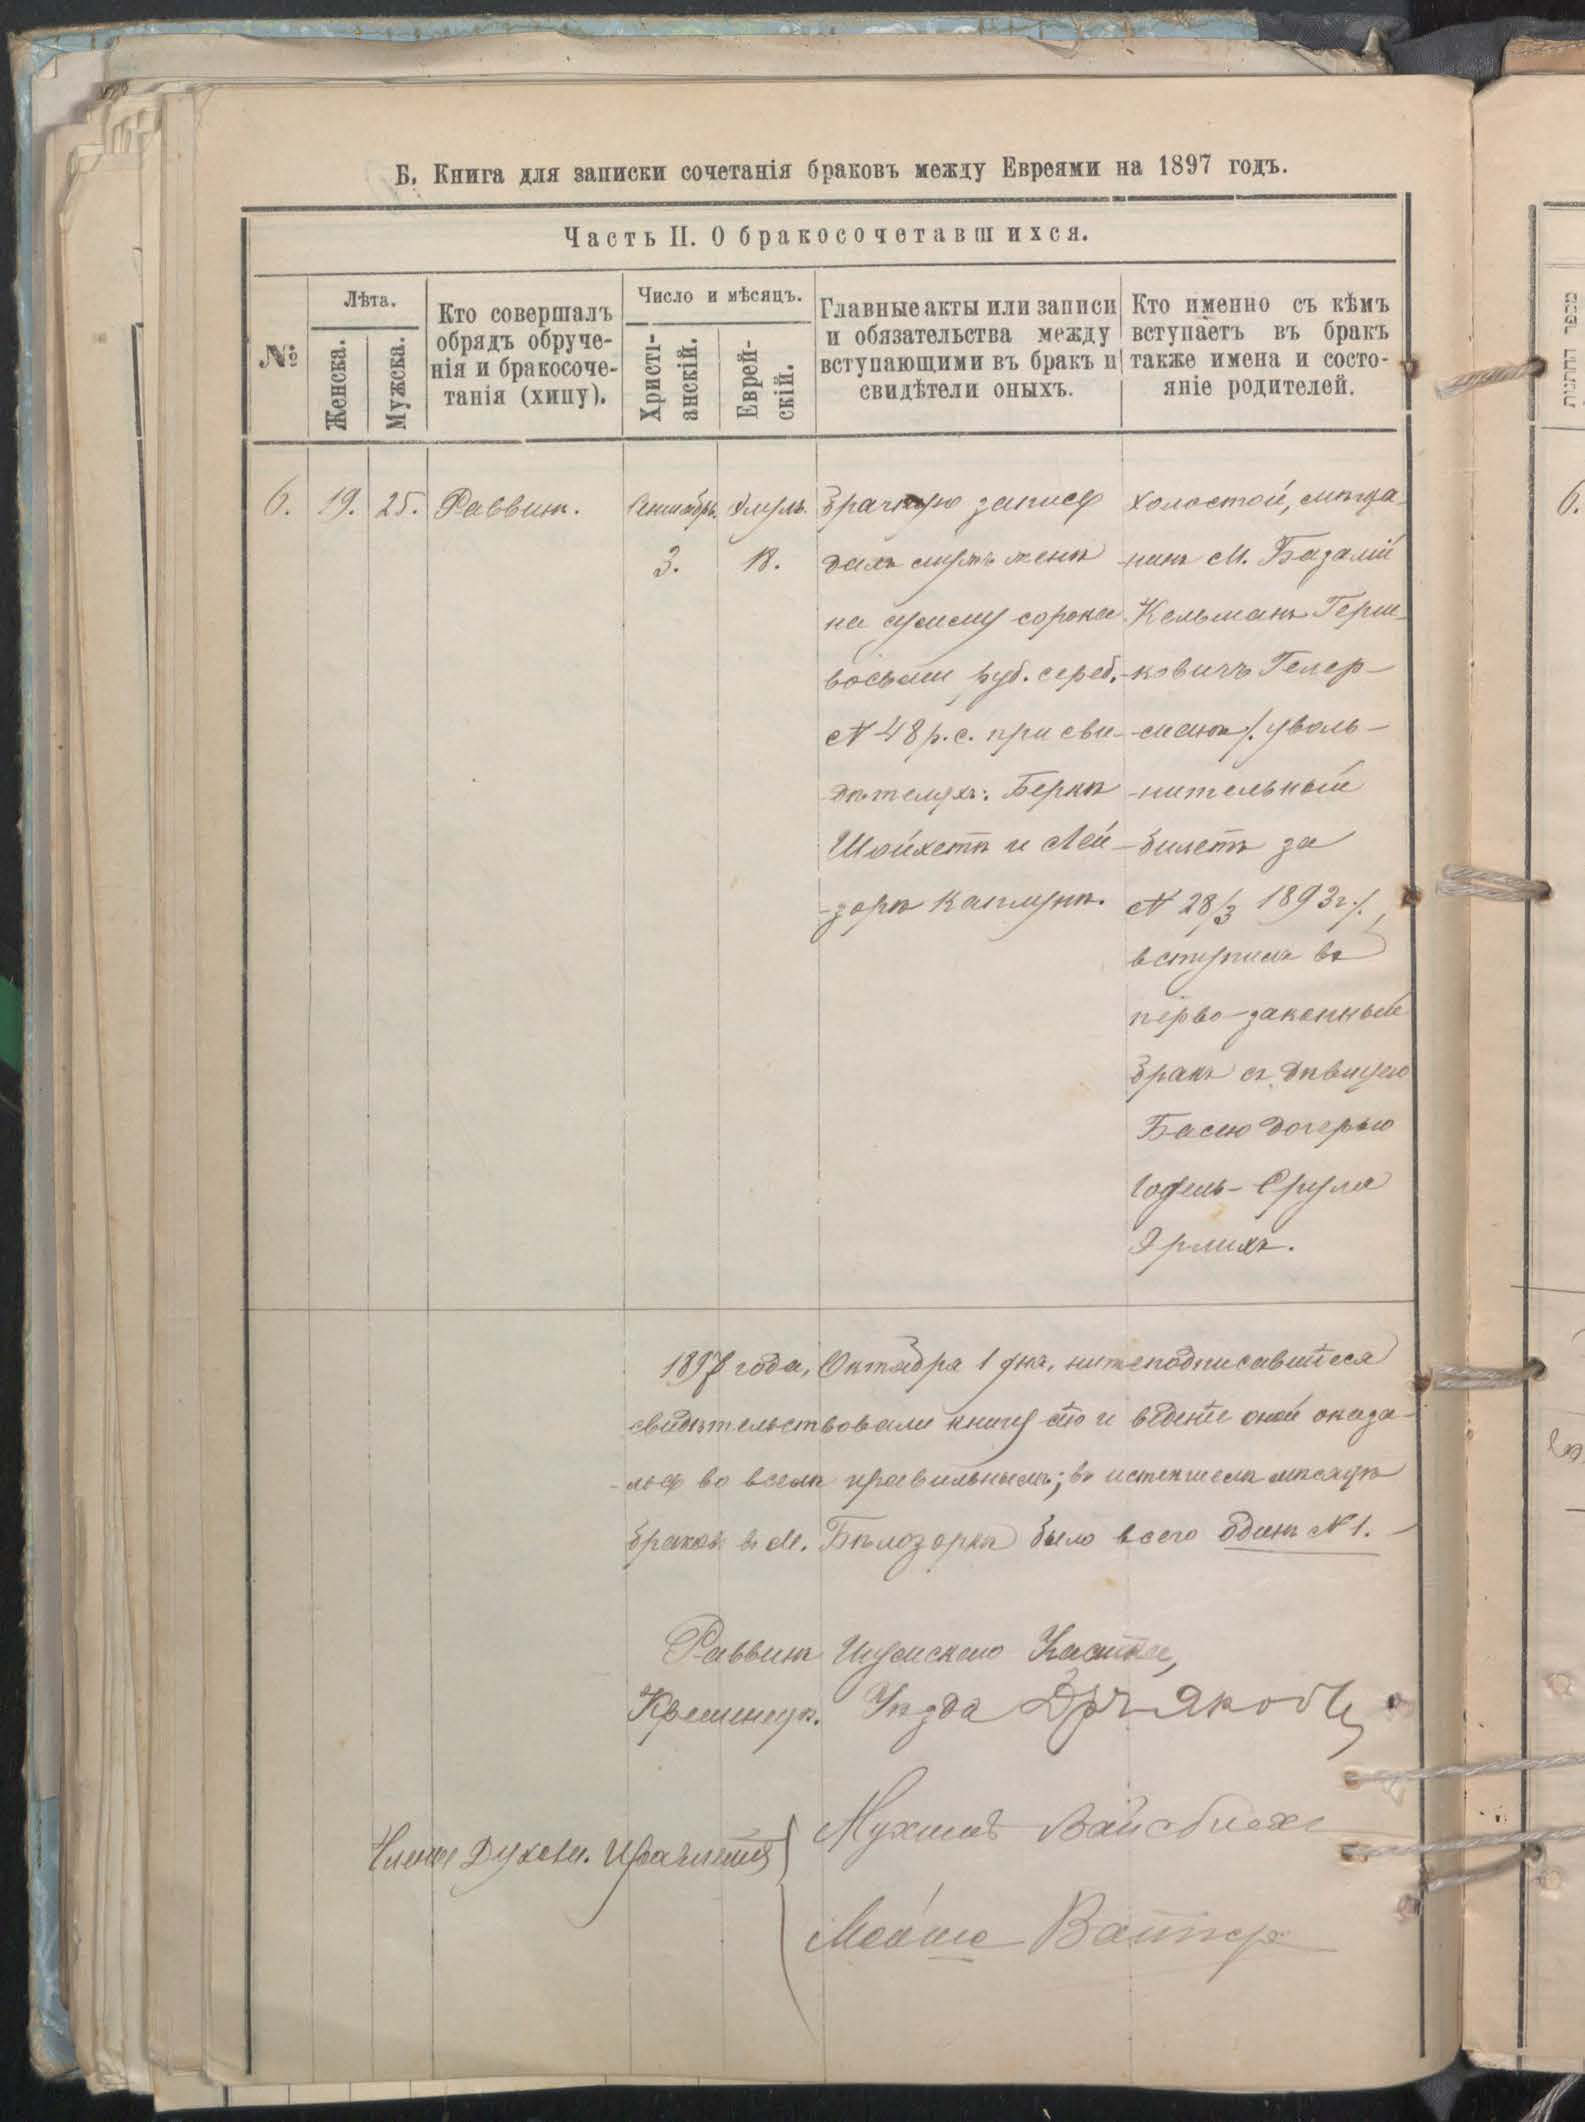 Б. Книга для записки сочетанія браковъ между Евреями на 1897 годъ.
Часть II. О бракосочетавшихся.
№
Лѣта.
Женска.
Мужска.
Кто совершалъ
обрядъ обруче-
нія и бракосоче-
танія (хипу).
Число и мѣсяцъ.
Христі-
анскій.
Еврей-
скій.
Главные акты или записи
и обязательства между
вступающими въ бракъ и
свидѣтели оныхъ.
Кто именно съ кѣмъ
вступаетъ въ бракъ
также имена и состо-
яніе родителей.
6. 19. 25. Раввин.
Сентябрь.
3.
Элулъ.
18.
Брачную запись
далъ мужъ женѣ
на сумму сорока
восьми руб. сереб.
№ 48 р. с. при сви-
дѣтеляхъ: Беркѣ
Шойхетѣ и Лей-
-зорѣ Каплунѣ.
Холостой, мѣща-
нинъ М. Базалій
Кельманъ Герш-
ковичъ Гелер-
-манъ /. уволь-
-нительный
-билетъ за
№ 28/3 1893 г. /.
вступилъ въ
перво-законный
бракъ съ дѣвицею
Басею дочерью
Срула
Эрлихъ.
1897 года, Октября 1 дня, нижеподписавшіеся
свидѣтельствовали книгу сію и веденіе оной оказа-
-лось во всемъ правильнымъ; въ истекшемъ мѣсяцѣ
браковъ въ М. Бѣлозоркѣ было всего одинъ № 1.
Раввинъ Шумскаго
Кременецк. Уѣзда
Члены Духовн. Правленія
Вайсблехъ